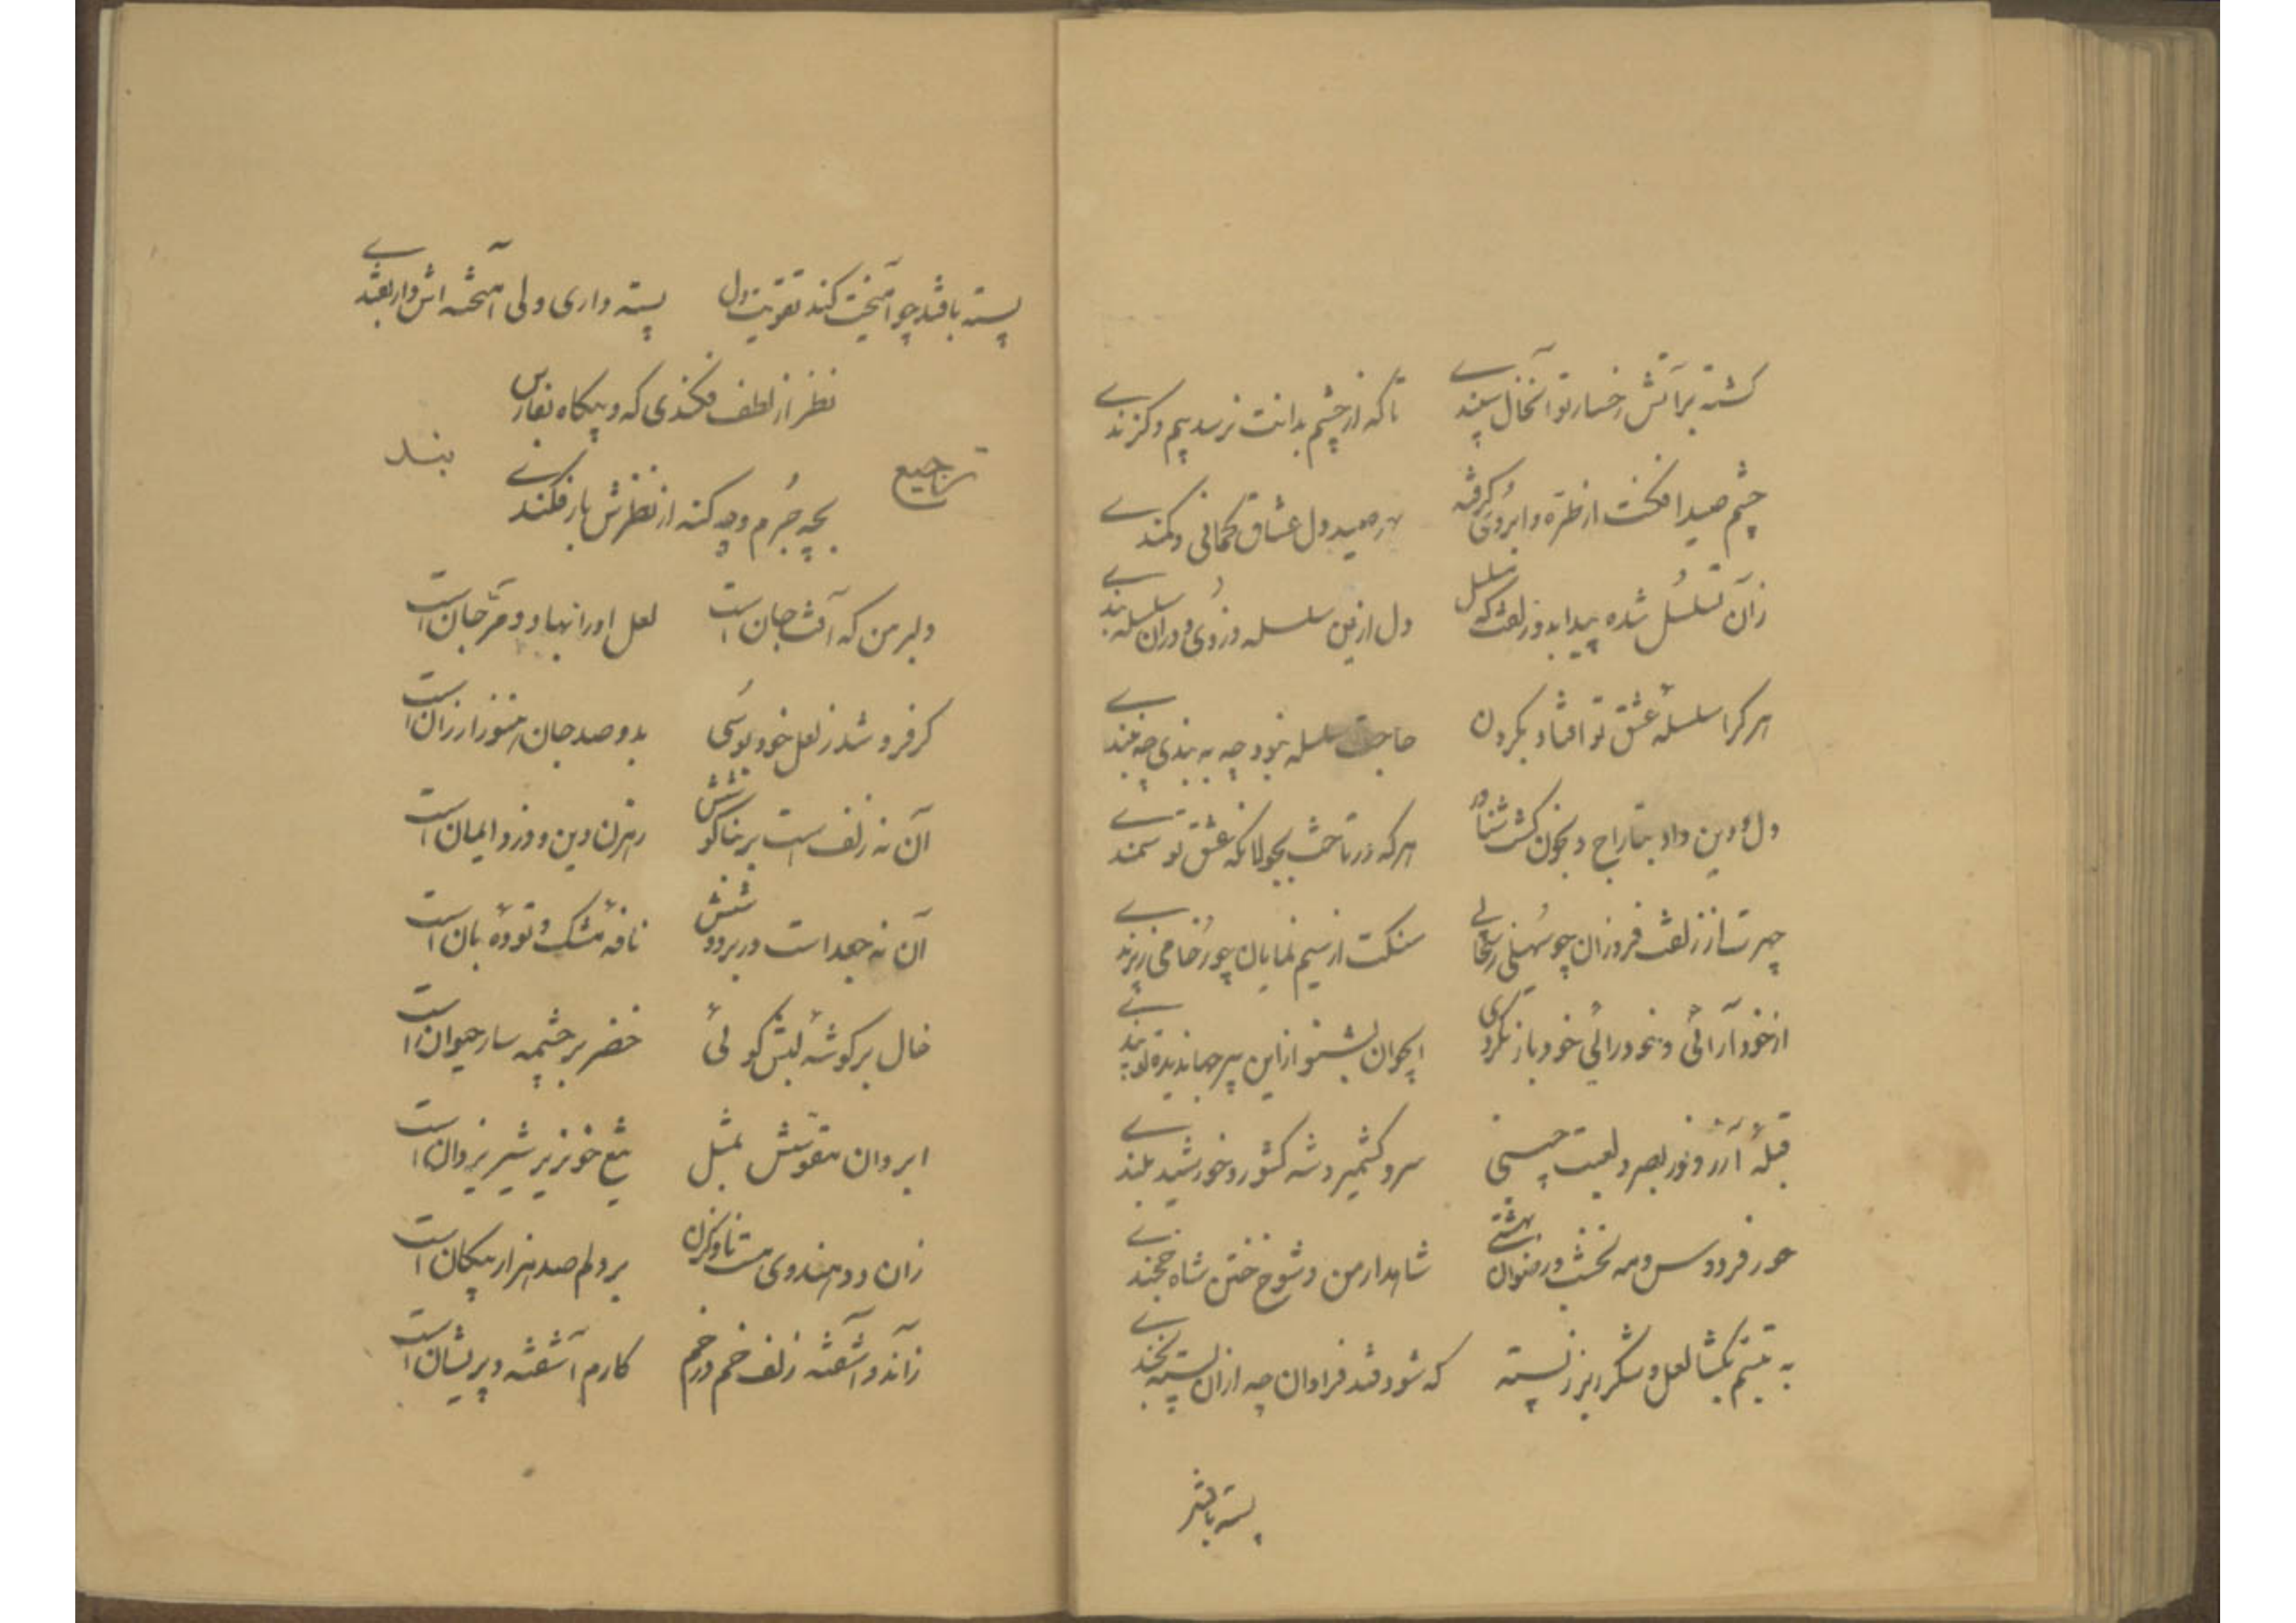 گشته بر آتش رخسار تو آنخال سپندے تا که از چشم بدانت نرسد بیم و گزندے
چشم صیدافکنت از طرّه و ابروی گرفته بهر صید دل عشاق کمانی و کمندے
زآن تسلسُل شده پیدا بدو زلفت که تسلسل دل ازین سلسله دزدُی و در آن سلسله بندے
هر کرا سلسلهٔ عشق تو افتاد بگردن حاجت سلسله نبود چه به بندی چه نبندے
دل و دین داد بتاراج و بخون گشت شناور هر که در تاخت بجولانگه عشق تو سمندے
چهرت از زلف فروزان چو سُهیلی سحابی سنگت از سیم نمایان چو رُخامی پرندے
از خودآرائی و خودرائی خود باز نکردی ایجوان بشنو از این پیر جهاندیده تو پندے
قبلهٔ آزر و نور بصر و لعبت چینی سرو کشمیر و شه کشور و خورشید بلندے
حور فردوس و مه نخشب و رضوان بهشتے شاهد ارمن و شوخ ختن شاه خجندے
به تبسّم بگشا لعل و شکر ریز ز پسته که شود قند فراوان چه از آن پسته بخندے
پسته با قند
پسته با قند چو آمیخت کند تقویت دل پسته داری ولی آمیخته‌اش دار بقندے
نظر از لطف فکندی که و بیگاه بفارس
ترجیع بچه جُرم و چه گنه از نظرش باز فکندے بند
دلبر من که آفت جان است لعل او را نهاد و مرجان است
گر فروشد ز لعل خود بوسُی بدو صد جان هنوز ارزان است
آن نه زلف است بر بناگوشش رهزن دین و دزد ایمان است
آن نه جعد است در بر دوشش نافهٔ مشک و تودهٔ بان است
خال بر گوشهٔ لبش گوئی خضر بر چشمه سار حیوان است
ابروان مقوسش بمثل تیغ خونریز شیر یزدان است
زان دو هندوی مست ناوک زن بر دلم صد هزار پیکان است
زاندو آشفته زلف خم در خم کارم آشفته و پریشان است